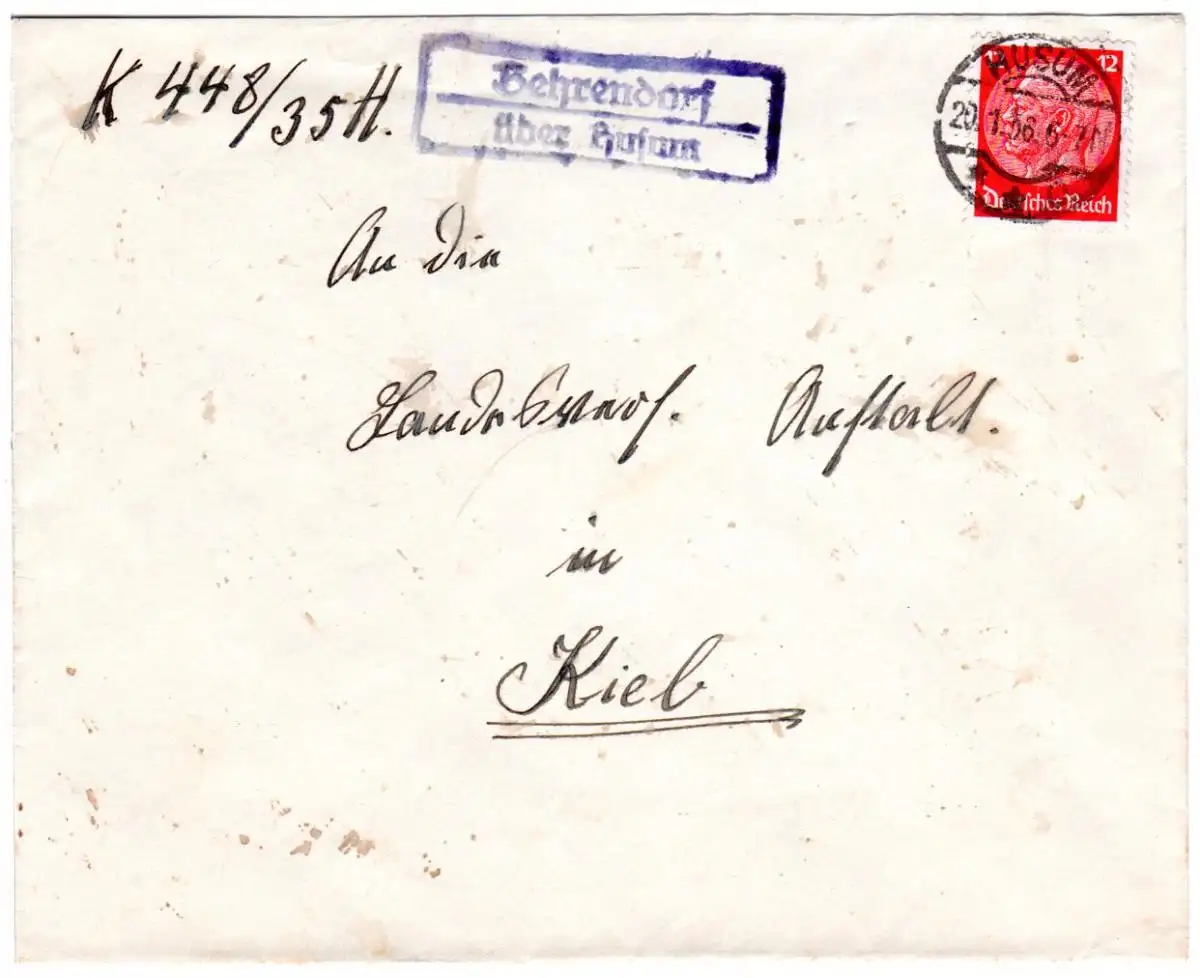 K 448/35 H.
Behrendorf
über Husum
HUSUM
20.1.36.6-7N
12
Deutsches Reich
An die
Landesvers. Anstalt.
in
Kiel